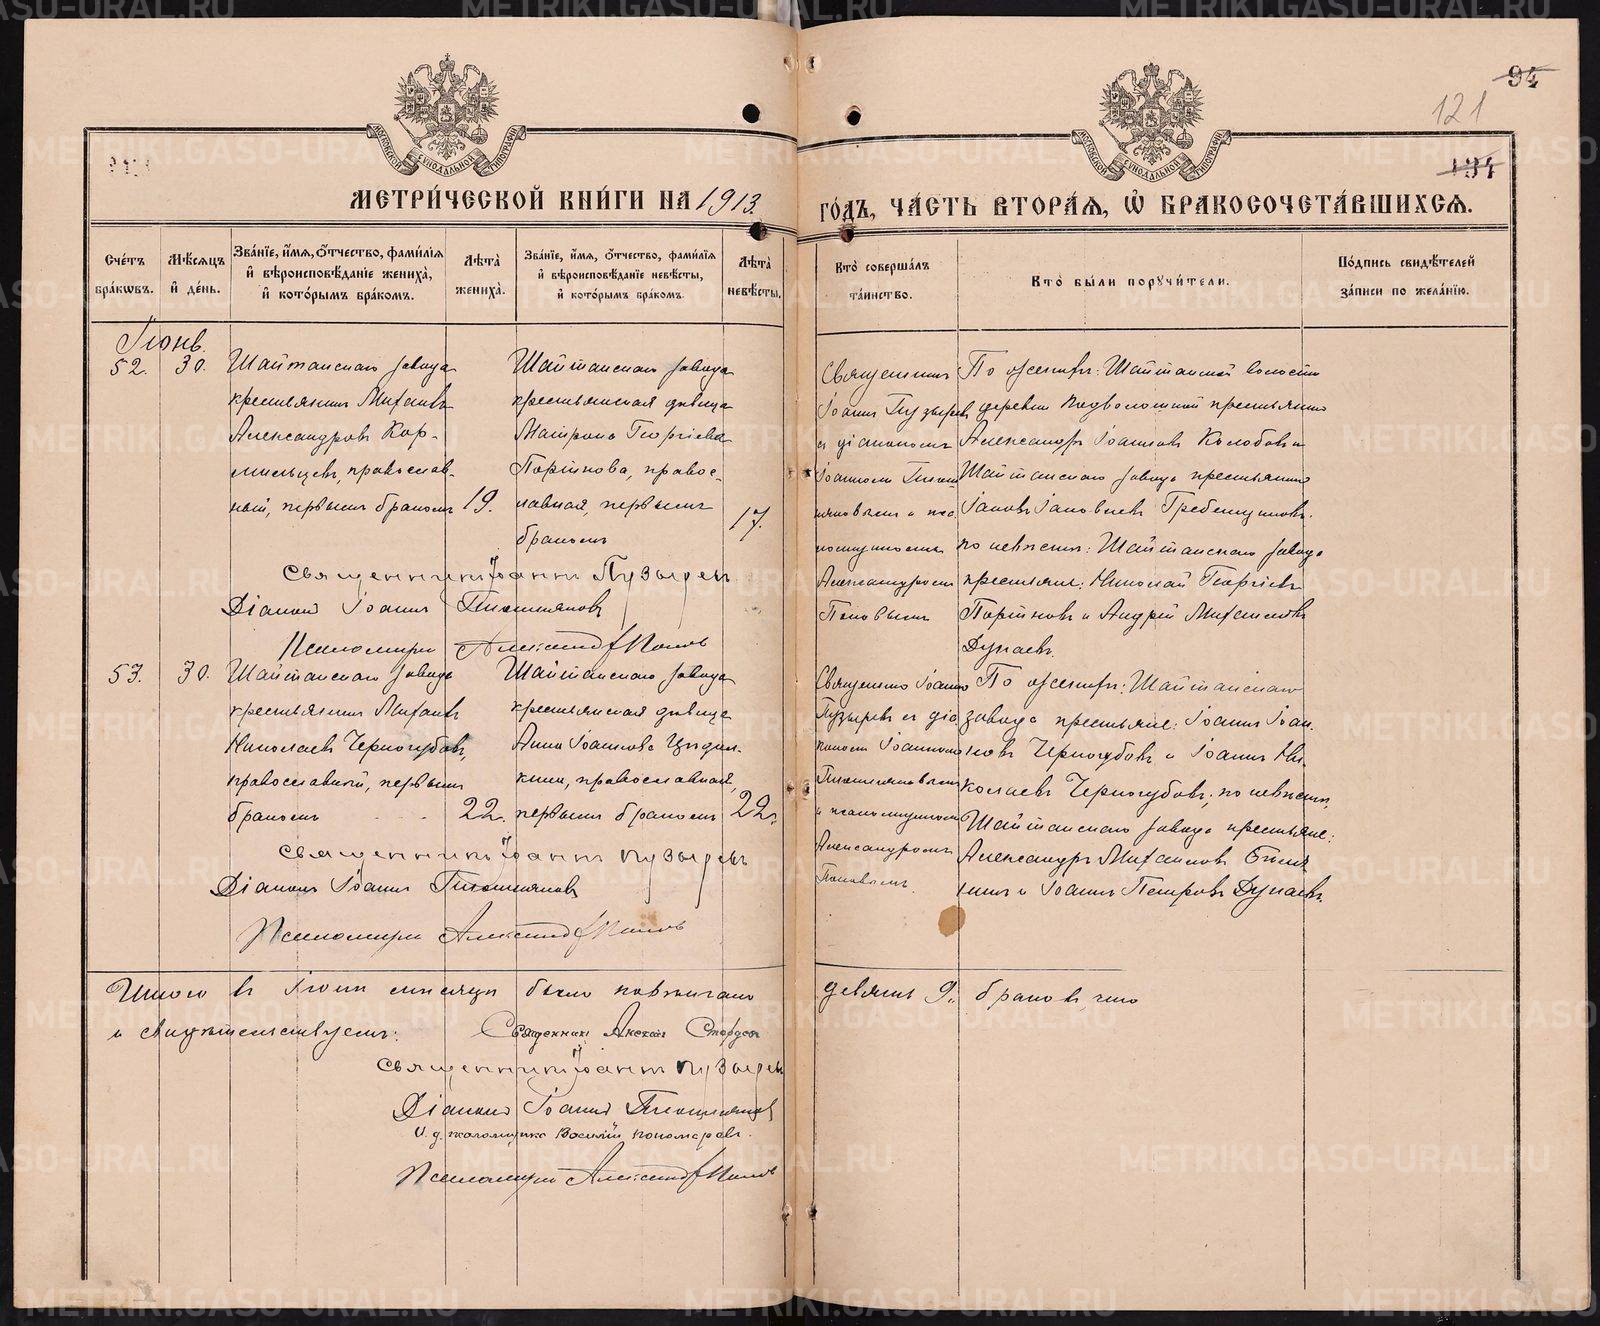 94
121
134
МОСКОВСКОЙ СѴНОДАЛЬНОЙ ТИПОГРАФІИ
МОСКОВСКОЙ СѴНОДАЛЬНОЙ ТИПОГРАФІИ
МЕТРИ́ЧЕСКОЙ КНИ́ГИ НА 1913.
ГО́ДЪ, ЧА́СТЬ ВТОРА́Я, Ѡ҆ БРАКОСОЧЕТА́ВШИХСЯ.
Сче́тъ бра́кѡвъ.
Мѣ́сяцъ и҆ де́нь.
Зва́нїе, и҆́мя, ѻ҆́тчество, фами́лїя и҆ вѣроисповѣ́данїе жениха̀, и҆ кото́рымъ бра́комъ.
Лѣ́та жениха̀.
Зва́нїе, и҆́мя, ѻ҆́тчество, фами́лїя и҆ вѣроисповѣ́данїе невѣ́сты, и҆ кото́рымъ бра́комъ
Лѣ́та невѣ́сты.
Кто̀ соверша́лъ та́инство.
Кто̀ бы́ли порꙋчи́тели.
По́дпись свидѣ́телей за́писи по жела́нїю.
Іюнь.
52.
30.
Шайтанскаго завода
крестьянинъ Михаилъ
Александровъ Кор-
мильцевъ, православ-
ный, первымъ бракомъ
19.
Шайтанскаго завода
крестьянская дѣвица
Матрона Георгіева
Портнова, правос-
лавная, первымъ
бракомъ
17.
Священникъ
Іоаннъ Пузырев
съ діакономъ
Іоанномъ
и пса
ломщикомъ
Александромъ
Поповымъ
По женихѣ: Шайтанской волости
деревни Подволошной крестьянинъ
Александръ Іоанновъ Колобовъ и
Шайтанскаго завода крестьянинъ
Іаковъ Іаковлевъ Гребенщиковъ.
по невѣстѣ: Шайтанскаго завода
крестьяне: Николай Георгіевъ
Портновъ и Андрей Михаиловъ
Дунаевъ.
Священникъ Іоаннъ Пузыревъ
Діаконъ Іоаннъ
Псаломщикъ Александръ Поповъ
53.
30.
Шайтанскаго завода
крестьянинъ Михаилъ
Николаевъ Черногубовъ,
православный, первымъ
бракомъ
22.
Шайтанскаго завода
крестьянская дѣвица
Анна Іоаннова
православная,
первымъ бракомъ
22.
Священникъ Іоаннъ
Пузыревъ съ діа
кономъ Іоанномъ
и псаломщикомъ
Александромъ
Поповымъ.
По женихѣ: Шайтанскаго
завода крестьяне: Іоаннъ Іоан
новъ Черногубовъ и Іоаннъ Ни
колаевъ Черногубовъ; по невѣстѣ,
Шайтанскаго завода крестьяне:
Александръ Михаиловъ
и Іоаннъ Петровъ Дунаевъ.
Священникъ Іоаннъ Пузыревъ
Діаконъ Іоаннъ
Псаломщикъ Александръ Поповъ
Итого въ Іюнѣ мѣсяцѣ было повѣнчано
девять 9. браковъ, что
и свидѣтельствуемъ:
Священникъ
Священникъ Іоаннъ Пузыревъ
Діаконъ Іоаннъ
И. д. псаломщика Василій Пономаревъ.
Псаломщикъ Александръ Поповъ
METRIKI.GASO-URAL.RU